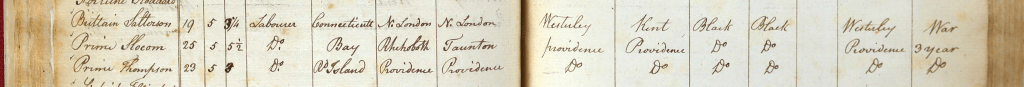 Brittain Saltonson 19 5 3½ Labourer Connecticutt N. London N. London Westerley Kent Black Black Westerley War
Prime Slocom 25 5 5½ Do Bay Rhehoboth Taunton providence Providence Do Do Providence 3 year
Prime Thompson 23 5 Do Rd Island Providence Providence Do Do Do Do Do Do